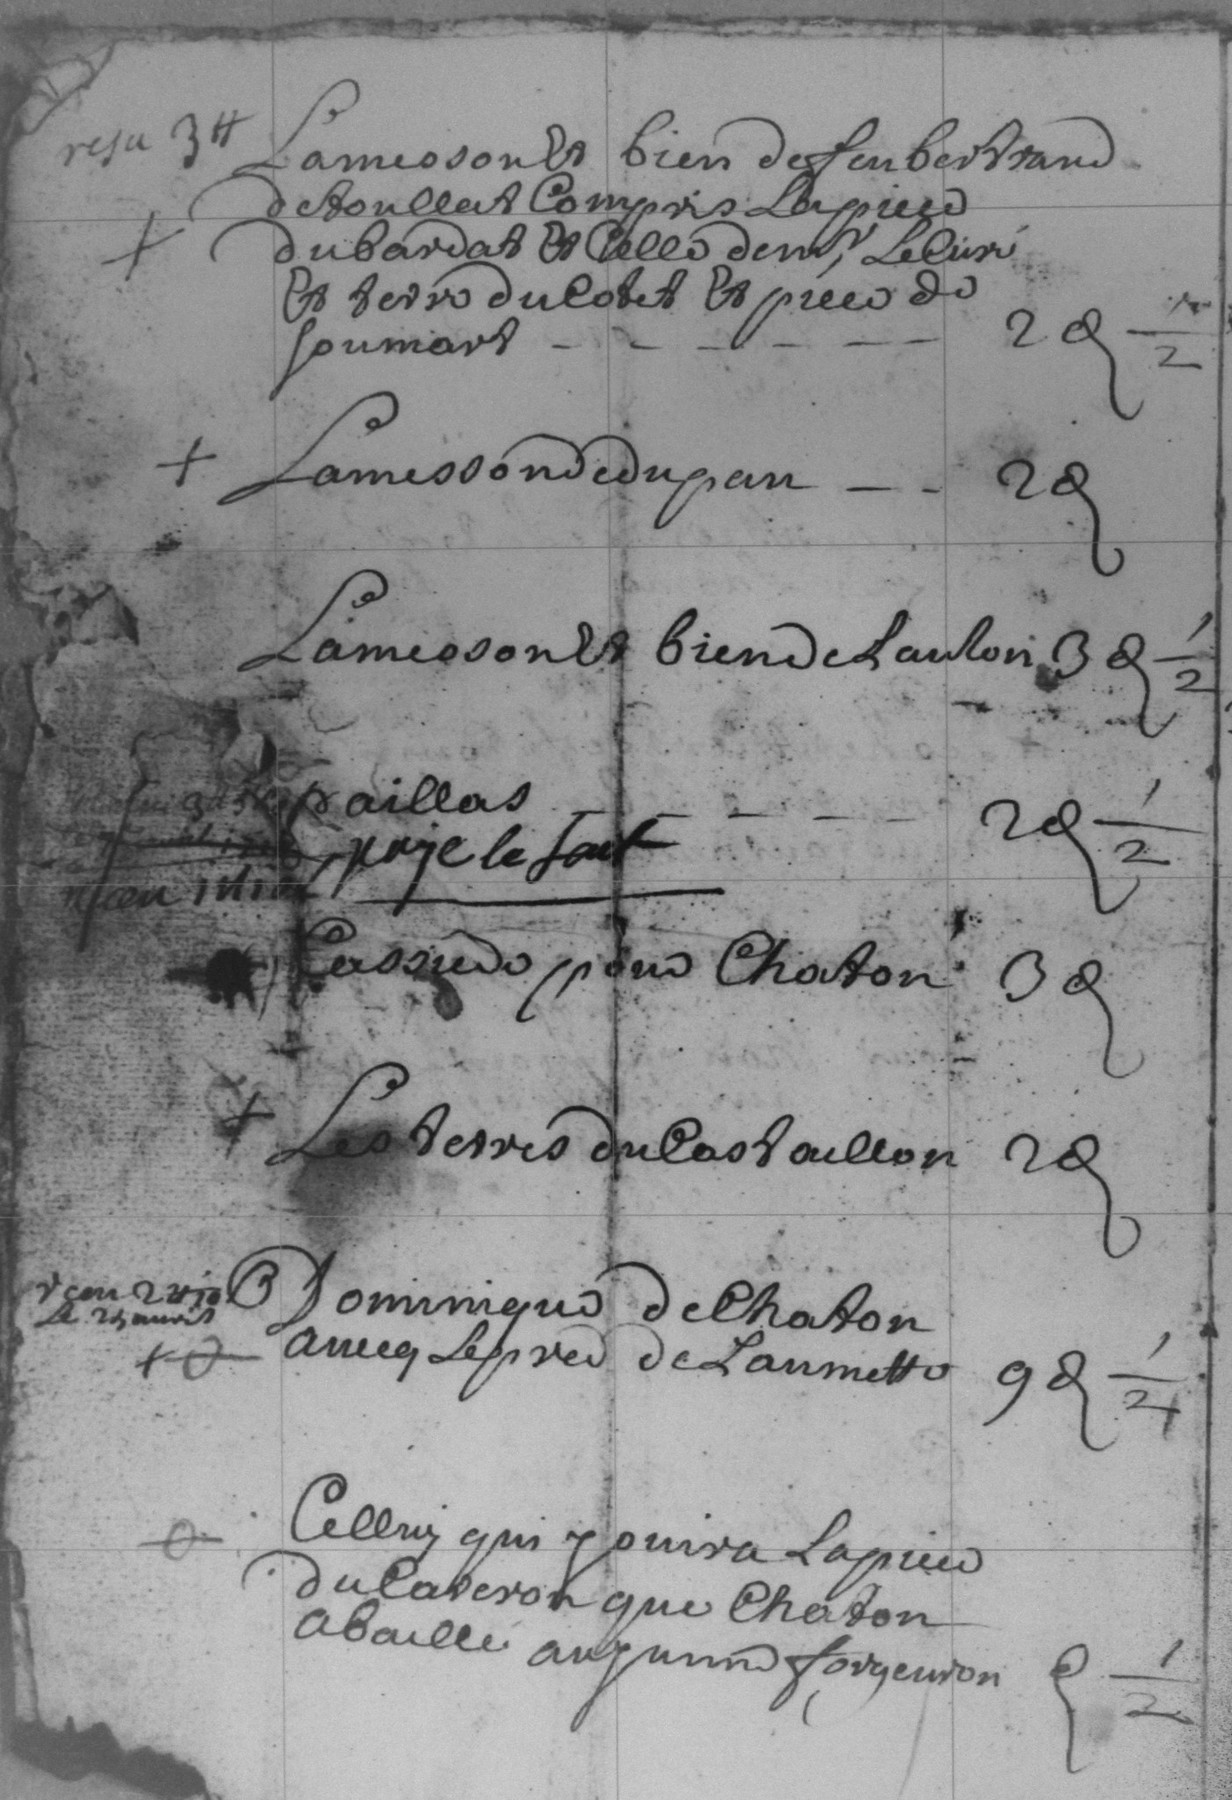 resu 3 ₶ Lameson Et bien de feu bertrand
detoullat Compris Lapiece
+ du bardat Et Celle de mr Le Curé
Et terre du Cotet Et piece de
soumart - - - - - - 2 d 1/2
+ Lamesson de dupan - - 2 d
Lameson Et bien de Laulon 3 d 1/2
paillas - - - - 2 d 1/2
paje le tout
Cassiede pour Chaton 3 d
+ Les terres du Castaillon 2 d
receu 2 ₶ 10 s Dominique de Chaton
+ o avecq Le pred de Laumette 9 d 1/2
o Celluy qui jouira Lapiece
du Caderon que Chaton
a baille au jeune forgeuron d 1/2